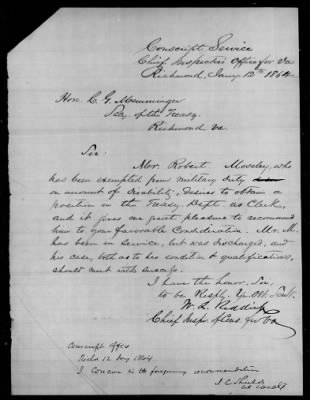 Conscript Service
Chief Inspectors Office for Va
Richmond Jany 12th 1864
Hon. C. G. Memminger
Secy. of the Treasy.
Richmond Va
Sir:
Mr. Robert Moseley, who
has been exempted from military duty
on amount of disability, desires to obtain a
position in the Treasy. Dept. as Clerk,
and it gives me great pleasure to recommend
him to your favorable Consideration. Mr. M.
has been in service, but was discharged, and
his case, both as to his condition & qualifications,
should meet with success.
I have the honor, Sir,
to be Respy. Yr. Obt. Servt.
W. L. Riddick
Chief Inspr. of Cons. for Va
Conscript Office
Richd 12 Jany 1864
I Concur in the foregoing recommendation
J C Shields